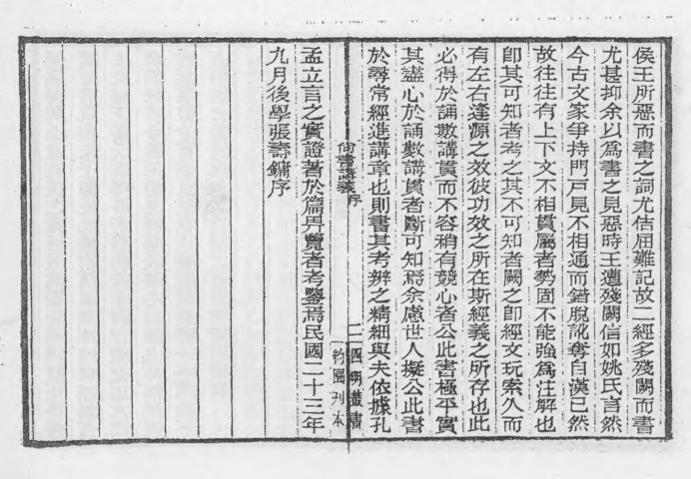 侯王所惡而書之詞尤佶屈難記故二經多殘闕而書
尤甚抑余以爲書之見惡時王遭殘闕信如姚氏言然
今古文家爭持門戸見不相通而錯脫訛奪自漢已然
故往往有上下文不相貫屬者勢固不能強爲注解也
卽其可知者考之其不可知者闕之卽經文玩索久而
有左右逢源之效彼功效之所在斯經義之所存也此
必得於誦數講貫而不容稍有競心者公此書極平實
其盡心於誦數講貫者斷可知焉余慮世人擬公此書
於尋常經進講章也則書其考辨之精細與夫依據孔
尚書講義序
二
四明叢書
約園刊本
孟立言之實證著於篇畀覽者考鑒焉民國二十三年
九月後學張壽鏞序